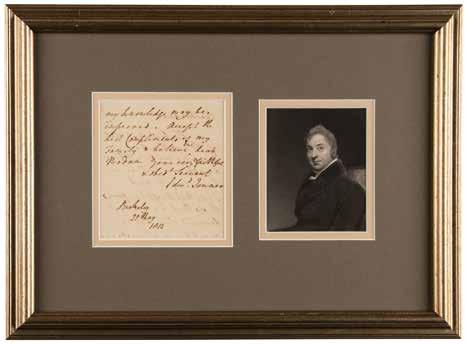 my knowledge may be
improved. Accept the
best Compliments of my
Family & believe me dear
Madam Your very faithful
& obedt Servant
Edwd Jenner
Berkeley
1812